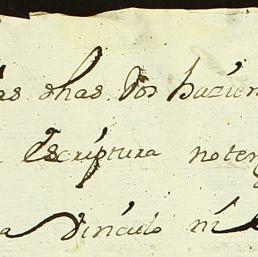 dhas dos hazien
Escriptura noten
a vinculo ni